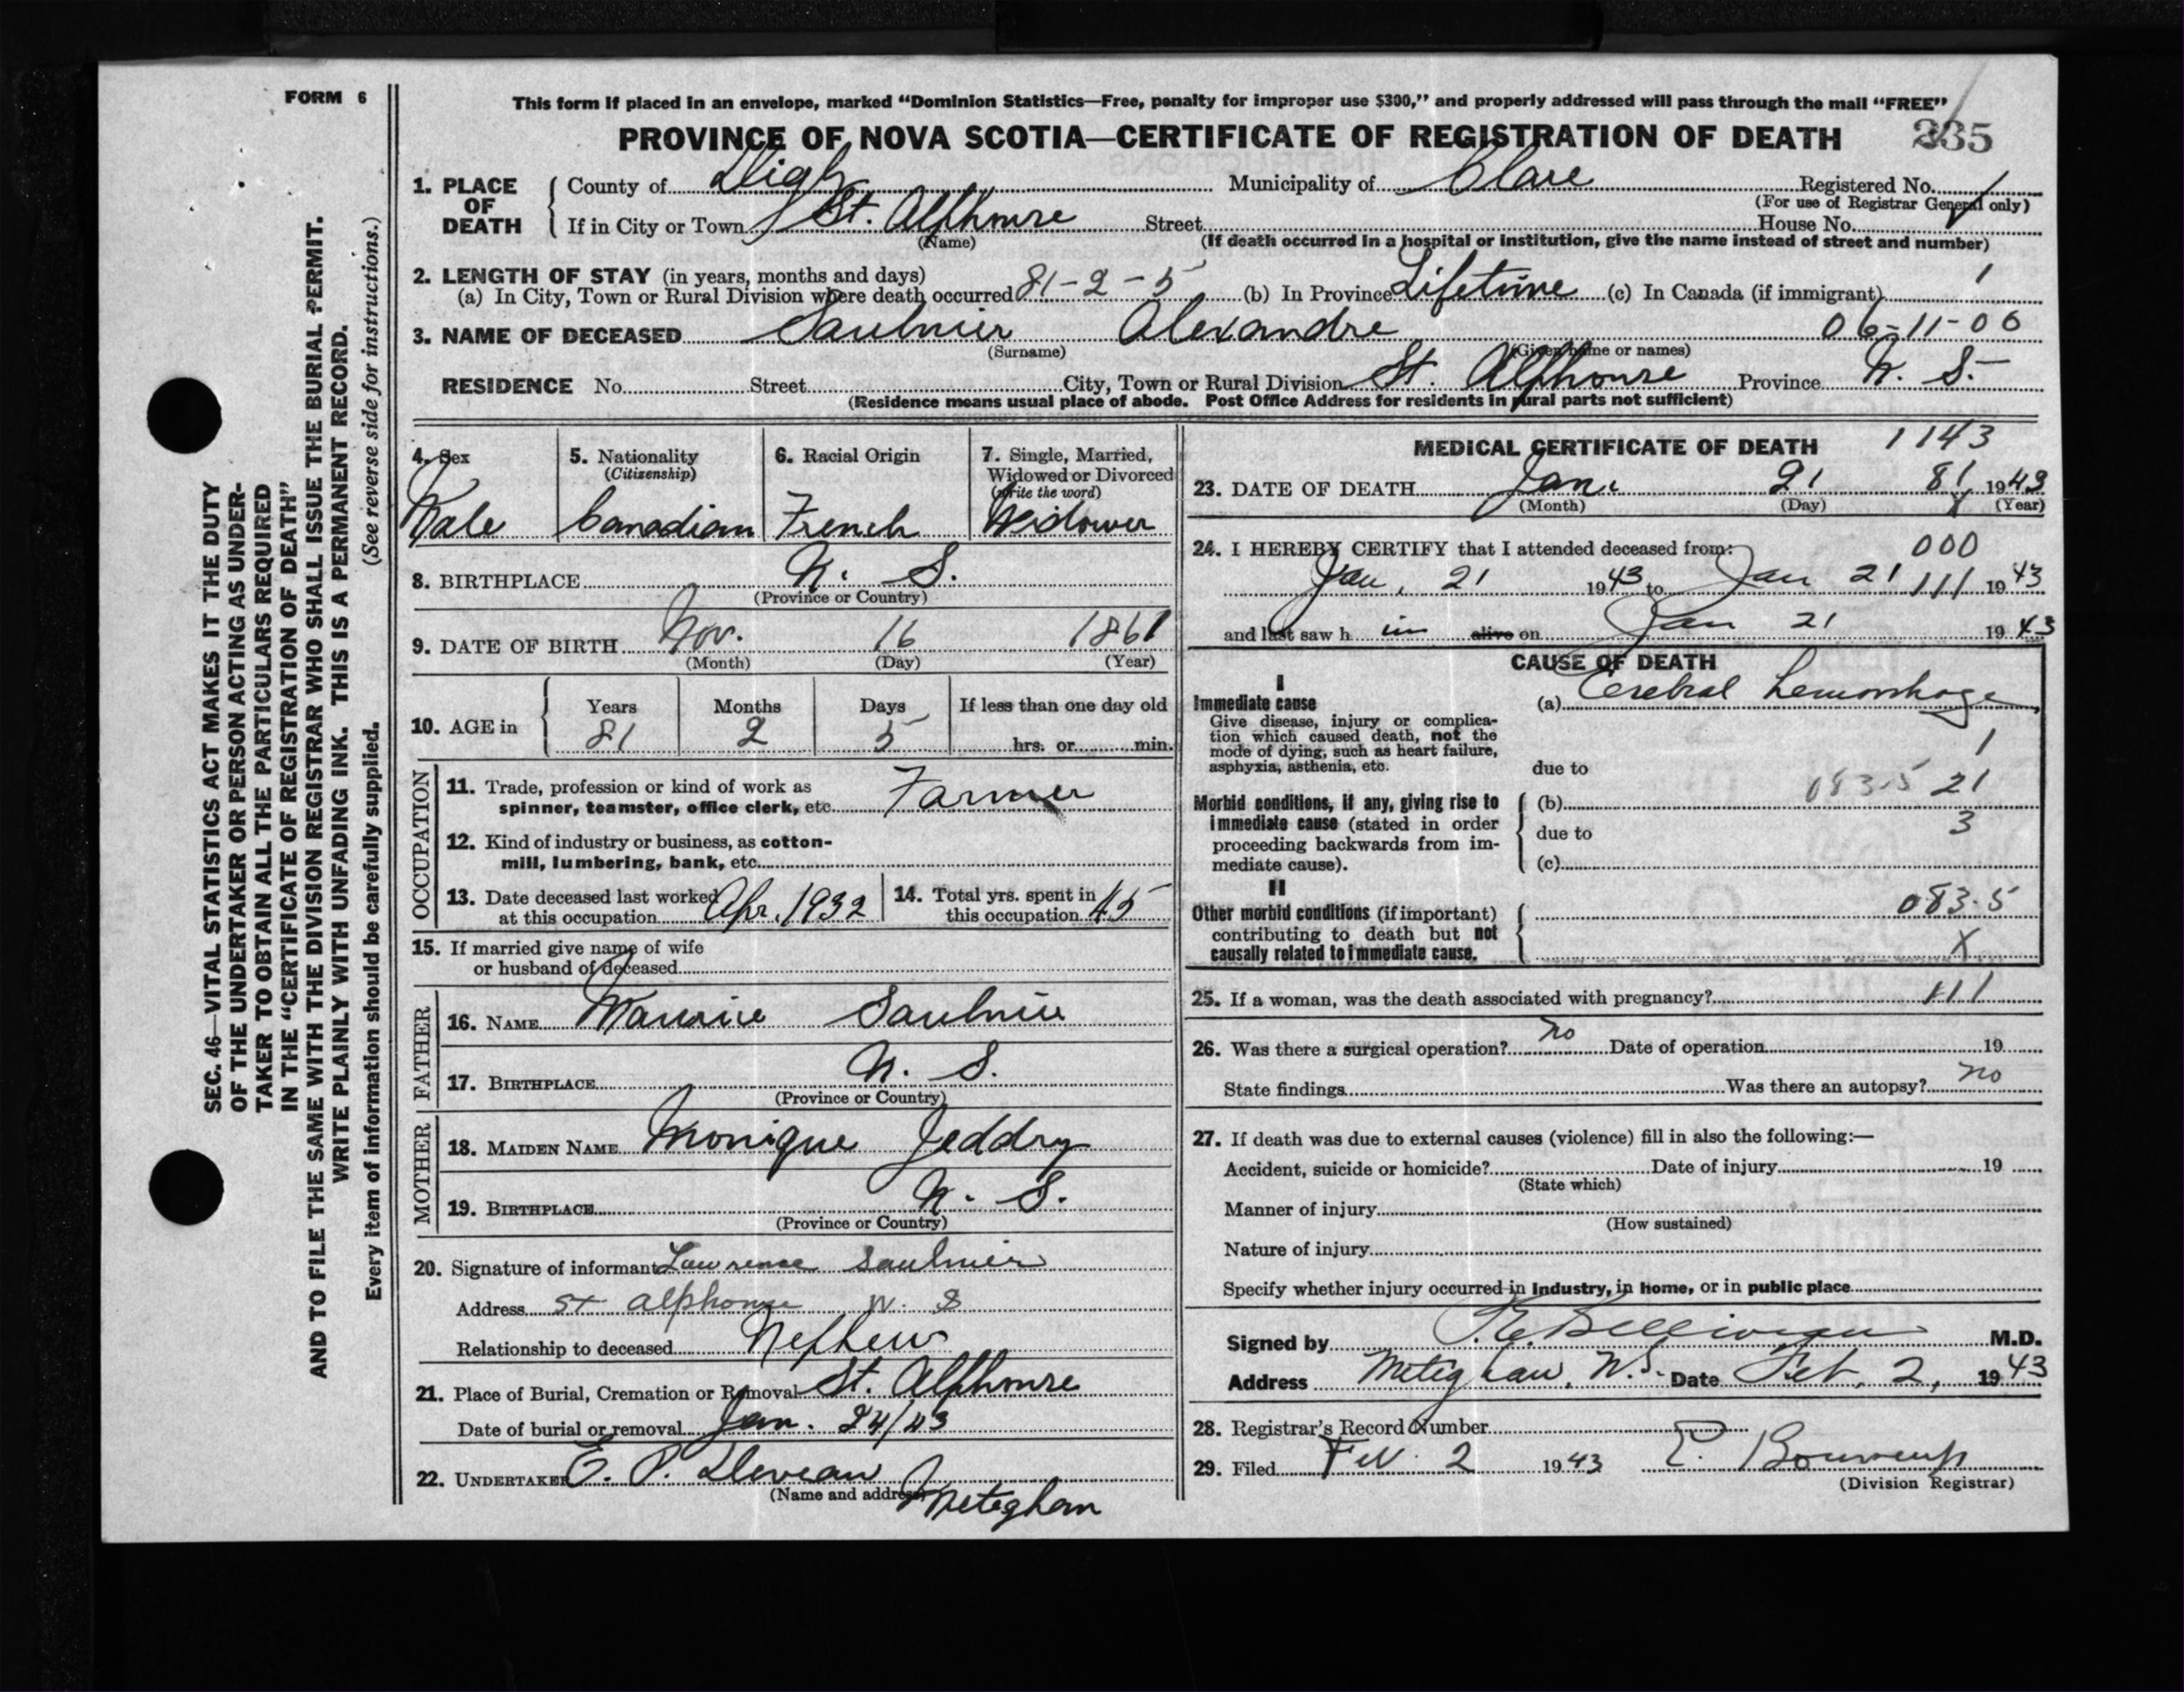 FORM 6
This form if placed in an envelope, marked “Dominion Statistics—Free, penalty for improper use $300,” and properly addressed will pass through the mail “FREE”
PROVINCE OF NOVA SCOTIA—CERTIFICATE OF REGISTRATION OF DEATH 235
1. PLACE OF DEATH
County of Digby Municipality of Clare Registered No.
(For use of Registrar General only)
If in City or Town St. Alphonse Street House No.
(Name) (If death occurred in a hospital or institution, give the name instead of street and number)
2. LENGTH OF STAY (in years, months and days)
(a) In City, Town or Rural Division where death occurred 81-2-5 (b) In Province Lifetime (c) In Canada (if immigrant) 1
3. NAME OF DECEASED Saulnier Alexandre 06-11-06
(Surname) (Given name or names)
RESIDENCE No. Street City, Town or Rural Division St. Alphonse Province N. S.
(Residence means usual place of abode. Post Office Address for residents in rural parts not sufficient)
4. Sex 5. Nationality 6. Racial Origin 7. Single, Married,
(Citizenship) Widowed or Divorced
(write the word)
Male Canadian French Widower
8. BIRTHPLACE N. S.
(Province or Country)
9. DATE OF BIRTH Nov. 16 1861
(Month) (Day) (Year)
10. AGE in Years Months Days If less than one day old
81 2 5 hrs. or min.
OCCUPATION
11. Trade, profession or kind of work as
spinner, teamster, office clerk, etc. Farmer
12. Kind of industry or business, as cotton-
mill, lumbering, bank, etc.
13. Date deceased last worked
at this occupation Apr. 1932
14. Total yrs. spent in
this occupation 45
15. If married give name of wife
or husband of deceased
FATHER
16. NAME Maurice Saulnier
17. BIRTHPLACE N. S.
(Province or Country)
MOTHER
18. MAIDEN NAME Monique Jeddry
19. BIRTHPLACE N. S.
(Province or Country)
20. Signature of informant Lawrence Saulnier
Address St Alphonse N. S
Relationship to deceased Nephew
21. Place of Burial, Cremation or Removal St. Alphonse
Date of burial or removal Jan. 24/43
22. UNDERTAKER E. P. Deveau
(Name and address) Meteghan
MEDICAL CERTIFICATE OF DEATH 1143
23. DATE OF DEATH Jan. 21 81 1943
(Month) (Day) X (Year)
24. I HEREBY CERTIFY that I attended deceased from: 000
Jan, 21 1943 to Jan 21 111 1943
and last saw him alive on Jan 21 1943
CAUSE OF DEATH
I
Immediate cause (a) Cerebral hemorrhage
Give disease, injury or complica-
tion which caused death, not the
mode of dying, such as heart failure,
asphyxia, asthenia, etc.
1
due to
Morbid conditions, if any, giving rise to (b) 083.5 21
immediate cause (stated in order
proceeding backwards from im-
mediate cause).
due to 3
(c)
II
Other morbid conditions (if important) 083.5
contributing to death but not
causally related to immediate cause. X
25. If a woman, was the death associated with pregnancy? 111
26. Was there a surgical operation? no Date of operation 19
State findings Was there an autopsy? no
27. If death was due to external causes (violence) fill in also the following:—
Accident, suicide or homicide? Date of injury 19
(State which)
Manner of injury
(How sustained)
Nature of injury
Specify whether injury occurred in Industry, in home, or in public place
Signed by Belliveau M.D.
Address Meteghan, N.S. Date Feb. 2, 1943
28. Registrar's Record Number
29. Filed Feb. 2 1943 E.
(Division Registrar)
SEC. 46—VITAL STATISTICS ACT MAKES IT THE DUTY
OF THE UNDERTAKER OR PERSON ACTING AS UNDER-
TAKER TO OBTAIN ALL THE PARTICULARS REQUIRED
IN THE “CERTIFICATE OF REGISTRATION OF DEATH”
AND TO FILE THE SAME WITH THE DIVISION REGISTRAR WHO SHALL ISSUE THE BURIAL PERMIT.
WRITE PLAINLY WITH UNFADING INK. THIS IS A PERMANENT RECORD.
Every item of information should be carefully supplied. (See reverse side for instructions.)